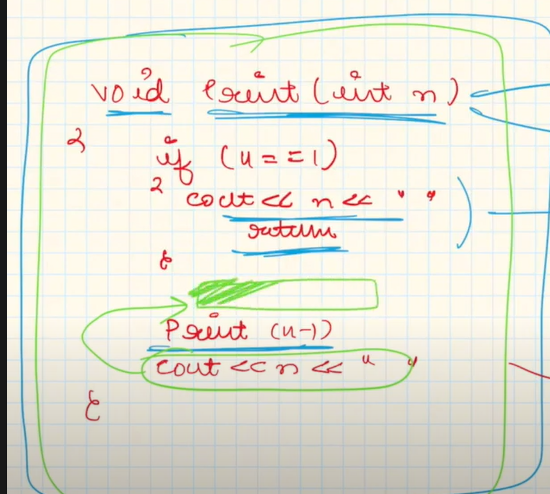 void Print (int n)
{
if (n == 1)
{ cout << n << " "
return
}
Print (n-1)
cout << n << " "
}